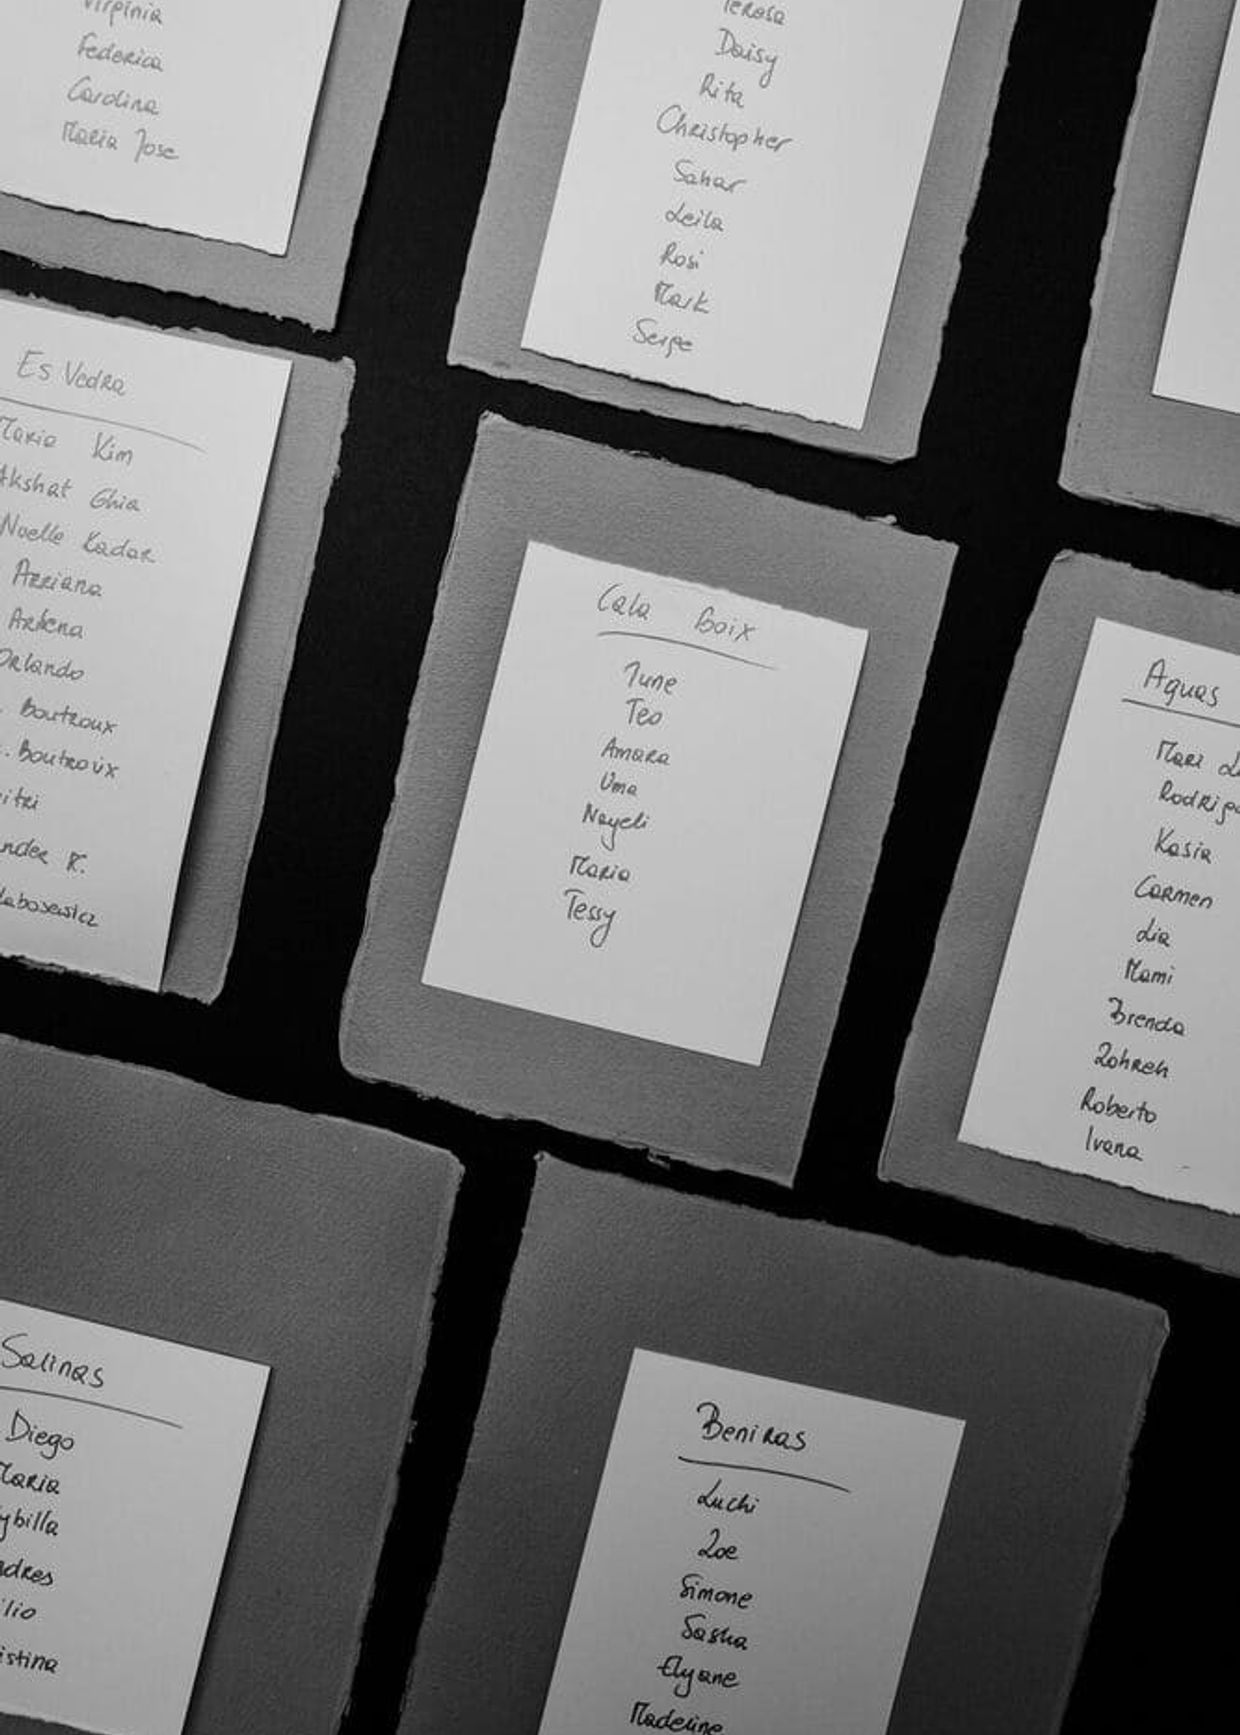 Virginia
Federica
Carolina
Maria Jose
Teresa
Daisy
Rita
Christopher
Sahar
Leila
Rosi
Mark
Serge
Es Vedra
Maria Kim
Akshat Ghia
Noelle Kadar
Arriana
Artena
Orlando
. Boutroux
. Boutroux
itri
nder K.
Cala Boix
June
Teo
Amara
Uma
Nayeli
Maria
Tessy
Aguas
Mari L
Rodrigo
Kasia
Carmen
Lia
Mami
Brenda
Zohreh
Roberto
Ivana
Salinas
Diego
Maria
ybilla
ndres
ilio
istina
Beniras
Luchi
Zoe
Simone
Sasha
Elyane
Madeline